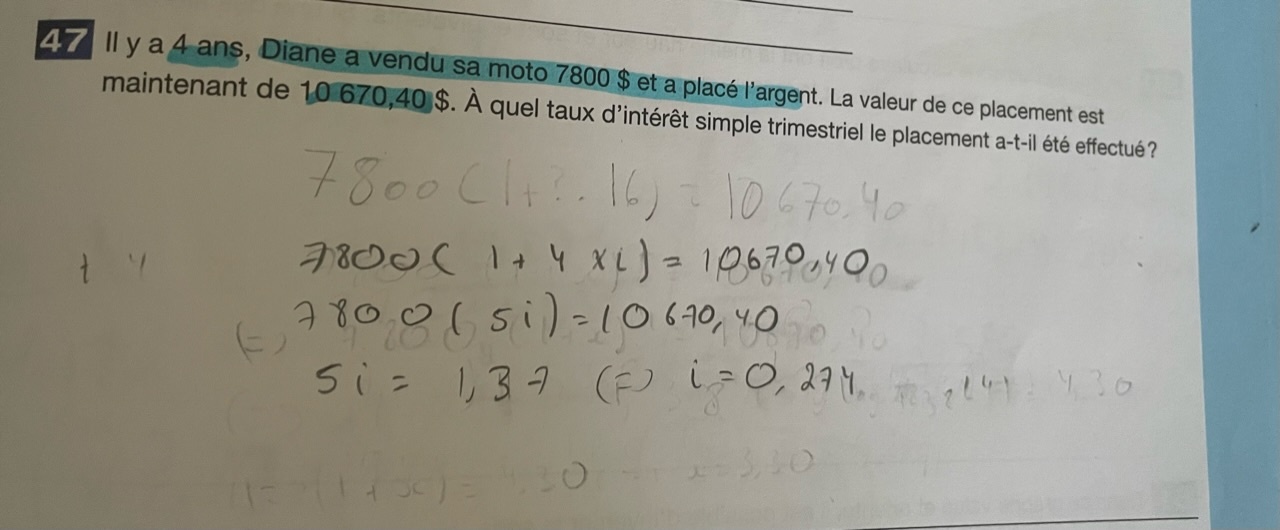 47 Il y a 4 ans, Diane a vendu sa moto 7800 $ et a placé l'argent. La valeur de ce placement est
maintenant de 10 670,40 $. À quel taux d'intérêt simple trimestriel le placement a-t-il été effectué ?
7800 (1+?. 16) = 10670,40
7800( 1 + 4 x i) = 10670,40
7800 ( 5 i) = 10 670,40
5 i = 1,37 (=) i = 0,274